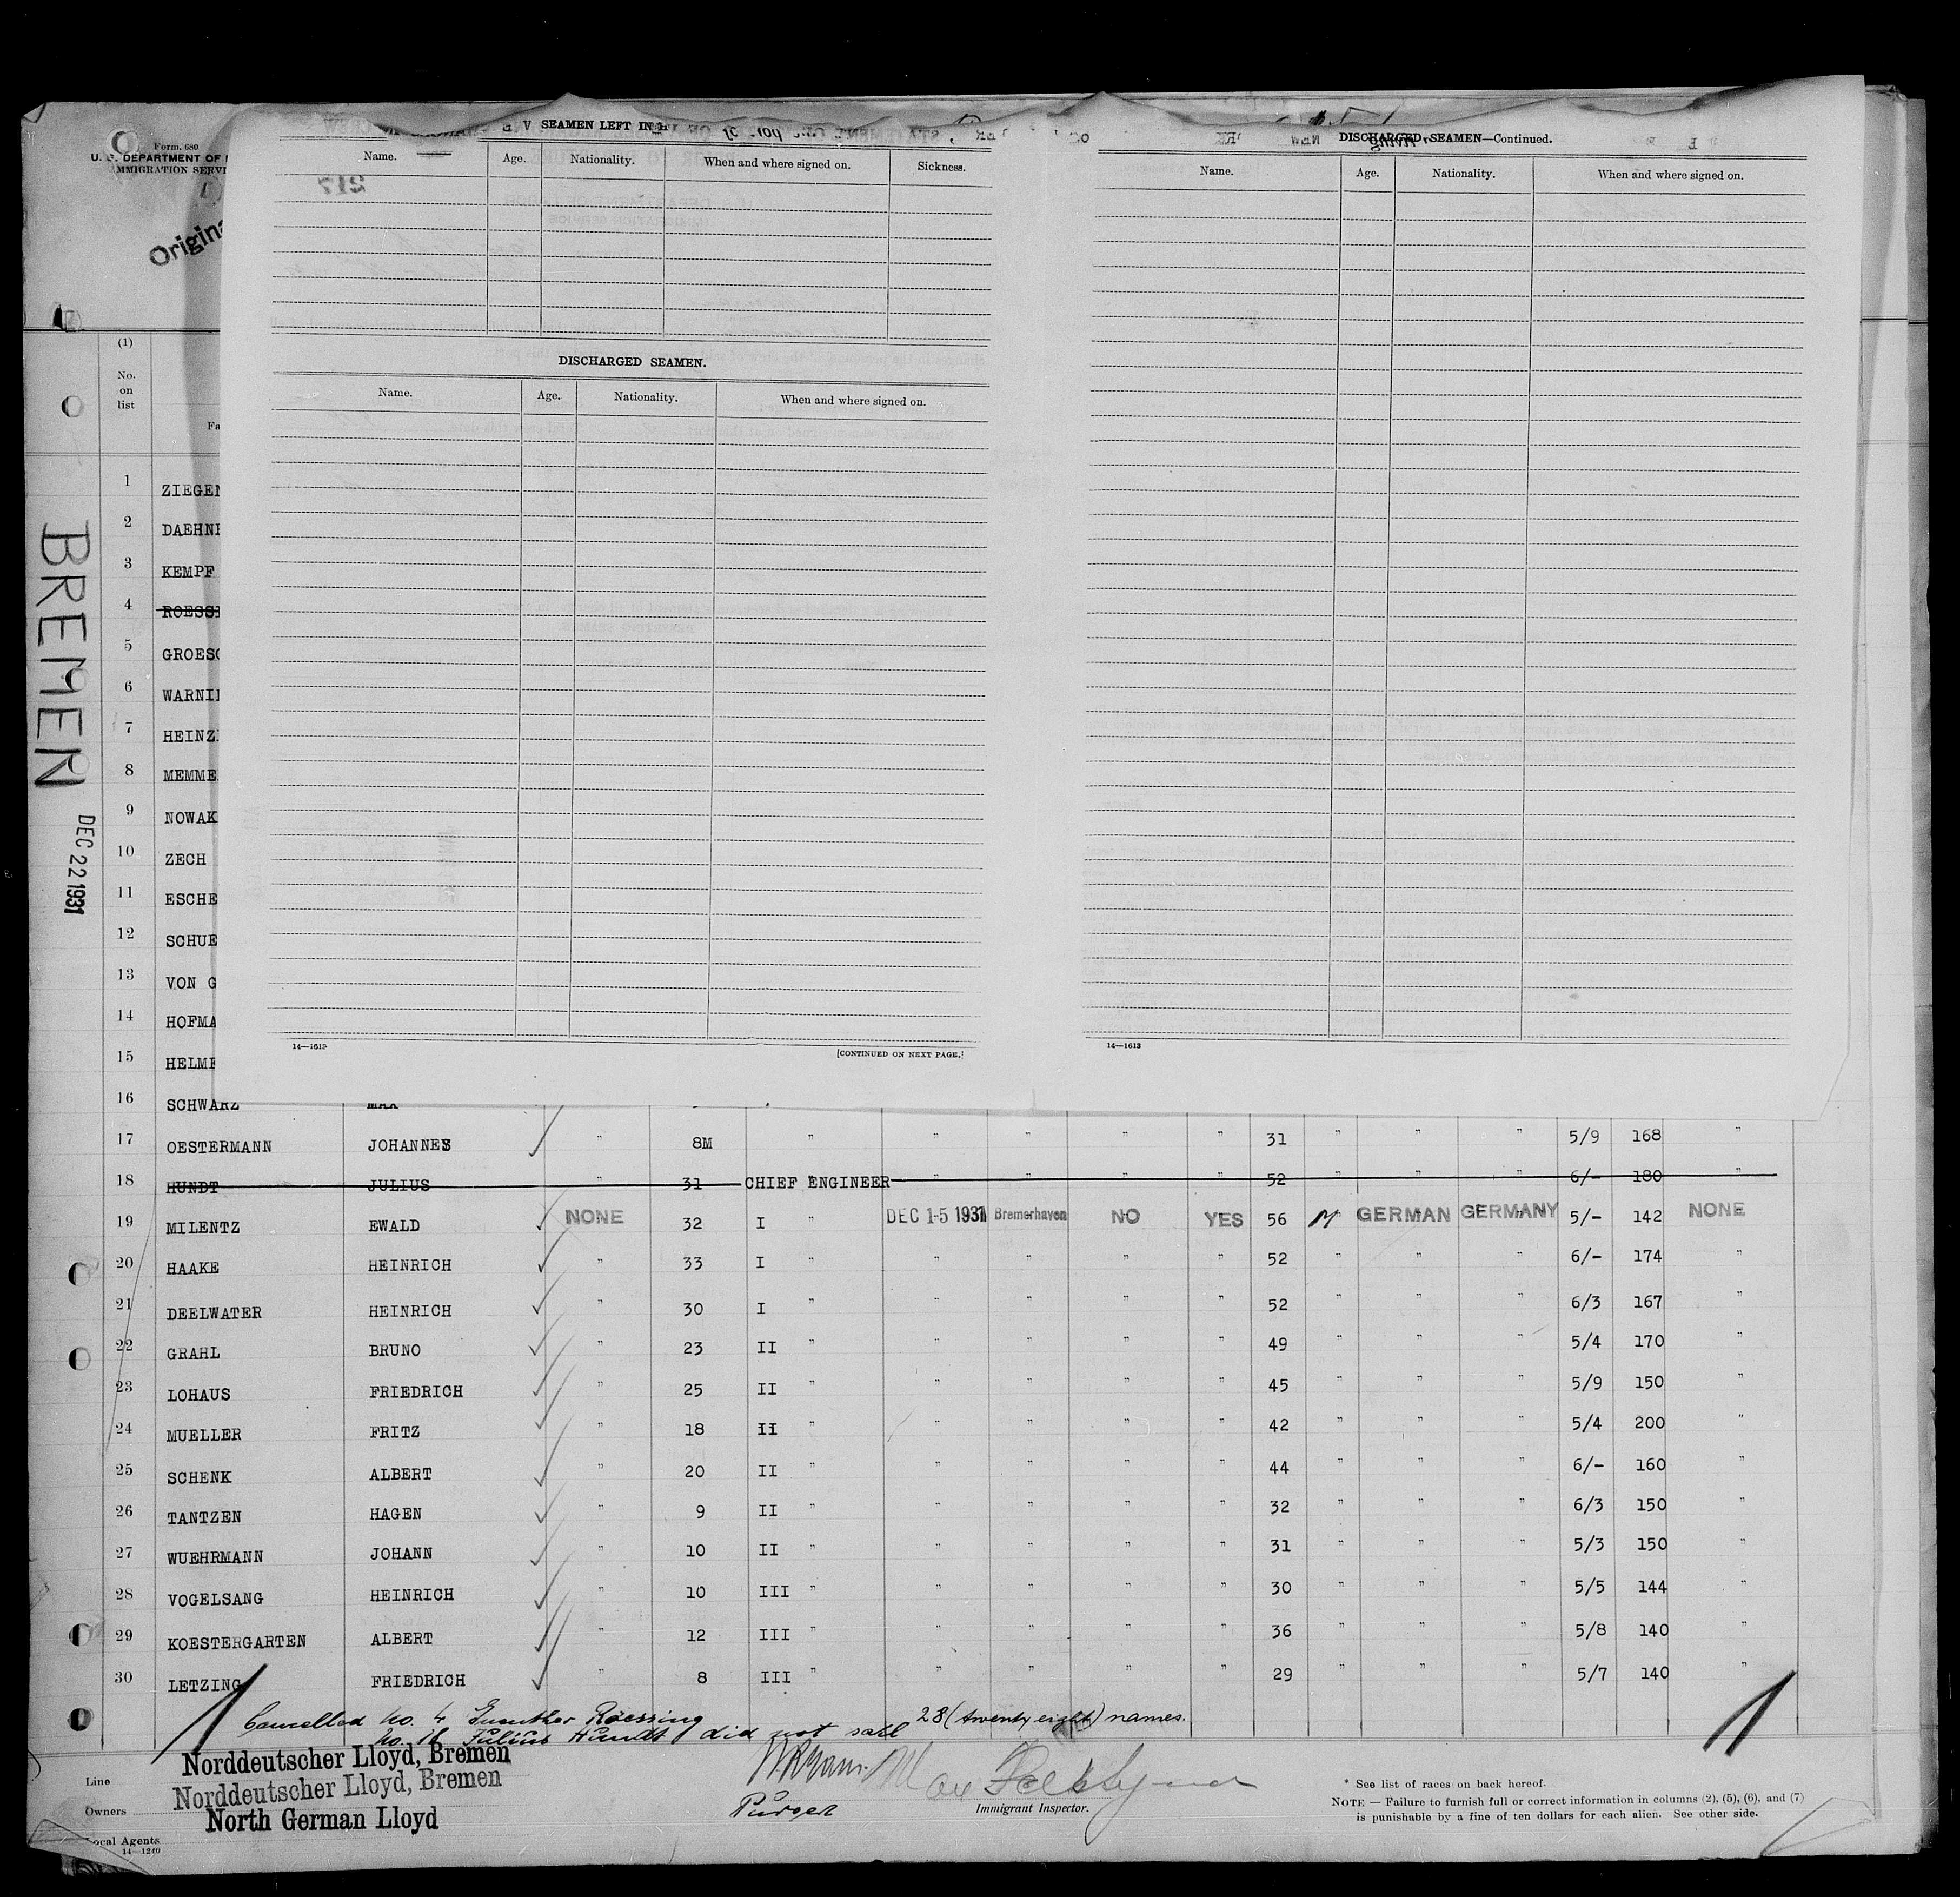 Form. 680
U. S. DEPARTMENT OF
IMMIGRATION SERVI
Origina
SEAMEN LEFT IN
Name. Age. Nationality. When and where signed on. Sickness.
217
DISCHARGED SEAMEN.
Name. Age. Nationality. When and where signed on.
14—1613
[CONTINUED ON NEXT PAGE.]
DISCHARGED SEAMEN—Continued.
Name. Age. Nationality. When and where signed on.
14—1613
BREMEN
DEC 22 1931
(1)
No.
on
list
Fa
1 ZIEGEN
2 DAEHNE
3 KEMPF
4 ROESS
5 GROESC
6 WARNI
7 HEINZ
8 MEMME
9 NOWAK
10 ZECH
11 ESCHE
12 SCHUE
13 VON G
14 HOFMA
15 HELME
16 SCHWARZ MAX
17 OESTERMANN JOHANNES " 8M " " " " " 31 " " " 5/9 168 "
18 HUNDT JULIUS " 31 CHIEF ENGINEER " " " " 52 " " " 6/- 180 "
19 MILENTZ EWALD NONE 32 I " DEC 15 1931 Bremerhaven NO YES 56 M GERMAN GERMANY 5/- 142 NONE
20 HAAKE HEINRICH " 33 I " " " " " 52 " " " 6/- 174 "
21 DEELWATER HEINRICH " 30 I " " " " " 52 " " " 6/3 167 "
22 GRAHL BRUNO " 23 II " " " " " 49 " " " 5/4 170 "
23 LOHAUS FRIEDRICH " 25 II " " " " " 45 " " " 5/9 150 "
24 MUELLER FRITZ " 18 II " " " " " 42 " " " 5/4 200 "
25 SCHENK ALBERT " 20 II " " " " " 44 " " " 6/- 160 "
26 TANTZEN HAGEN " 9 II " " " " " 32 " " " 6/3 150 "
27 WUEHRMANN JOHANN " 10 II " " " " " 31 " " " 5/3 150 "
28 VOGELSANG HEINRICH " 10 III " " " " " 30 " " " 5/5 144 "
29 KOESTERGARTEN ALBERT " 12 III " " " " " 36 " " " 5/8 140 "
30 LETZING FRIEDRICH " 8 III " " " " " 29 " " " 5/7 140 "
Cancelled No. 4 Guenther Roessing
No. 18 Julius Hundt did not sail 28 (twenty eight) names.
Line Norddeutscher Lloyd, Bremen
Owners Norddeutscher Lloyd, Bremen
Local Agents North German Lloyd
14—1240
Purser
Immigrant Inspector.
* See list of races on back hereof.
NOTE — Failure to furnish full or correct information in columns (2), (5), (6), and (7)
is punishable by a fine of ten dollars for each alien. See other side.